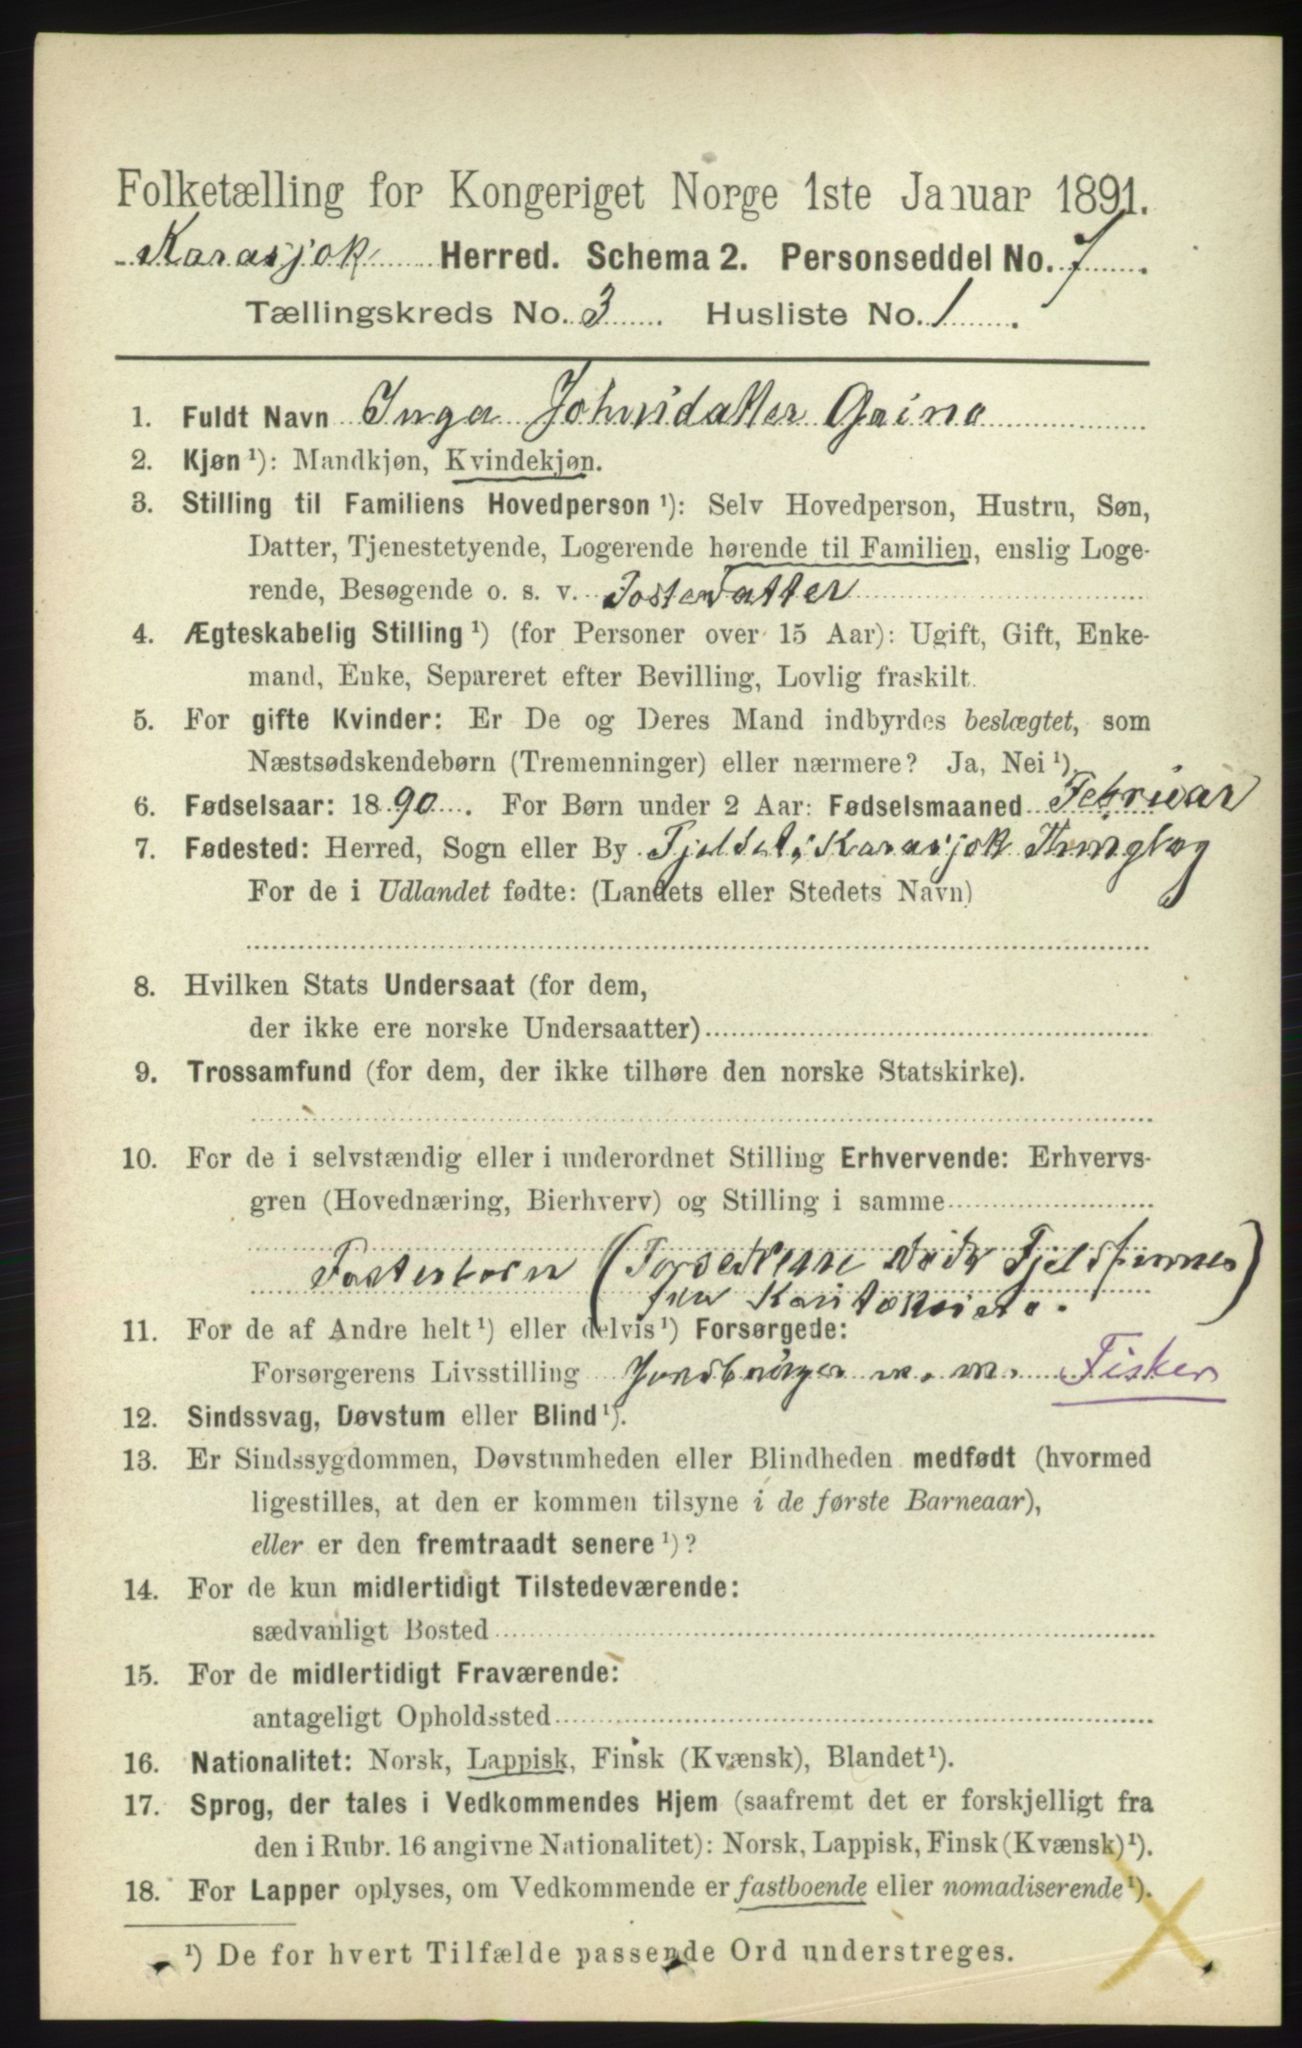 Folketælling for Kongeriget Norge 1ste Januar 1891.
Karasjok Herred. Schema 2. Personseddel No. 7.
Tællingskreds No. 3. Husliste No. 1.
1. Fuldt Navn Inga Johnsdatter Gaino
2. Kjøn ¹): Mandkjøn, Kvindekjøn.
3. Stilling til Familiens Hovedperson ¹): Selv Hovedperson, Hustru, Søn,
Datter, Tjenestetyende, Logerende hørende til Familien, enslig Loge-
rende, Besøgende o. s. v. Fosterdatter
4. Ægteskabelig Stilling ¹) (for Personer over 15 Aar): Ugift, Gift, Enke-
mand, Enke, Separeret efter Bevilling, Lovlig fraskilt.
5. For gifte Kvinder: Er De og Deres Mand indbyrdes beslægtet, som
Næstsødskendebørn (Tremenninger) eller nærmere? Ja, Nei ¹).
6. Fødselsaar: 1890. For Børn under 2 Aar: Fødselsmaaned Februar
7. Fødested: Herred, Sogn eller By Fjeldet i Karasjok Thinglag
For de i Udlandet fødte: (Landets eller Stedets Navn)
8. Hvilken Stats Undersaat (for dem,
der ikke ere norske Undersaatter)
9. Trossamfund (for dem, der ikke tilhøre den norske Statskirke).
10. For de i selvstændig eller i underordnet Stilling Erhvervende: Erhvervs-
gren (Hovednæring, Bierhverv) og Stilling i samme
Fosterbarn (Forældrene døde Fjeldfinner
fra Kautokeino.)
11. For de af Andre helt ¹) eller delvis ¹) Forsørgede:
Forsørgerens Livsstilling Jordbruger m. m. Fisker
12. Sindssvag, Døvstum eller Blind ¹).
13. Er Sindssygdommen, Døvstumheden eller Blindheden medfødt (hvormed
ligestilles, at den er kommen tilsyne i de første Barneaar),
eller er den fremtraadt senere ¹)?
14. For de kun midlertidigt Tilstedeværende:
sædvanligt Bosted
15. For de midlertidigt Fraværende:
antageligt Opholdssted
16. Nationalitet: Norsk, Lappisk, Finsk (Kvænsk), Blandet ¹).
17. Sprog, der tales i Vedkommendes Hjem (saafremt det er forskjelligt fra
den i Rubr. 16 angivne Nationalitet): Norsk, Lappisk, Finsk (Kvænsk) ¹).
18. For Lapper oplyses, om Vedkommende er fastboende eller nomadiserende ¹).
¹) De for hvert Tilfælde passende Ord understreges.